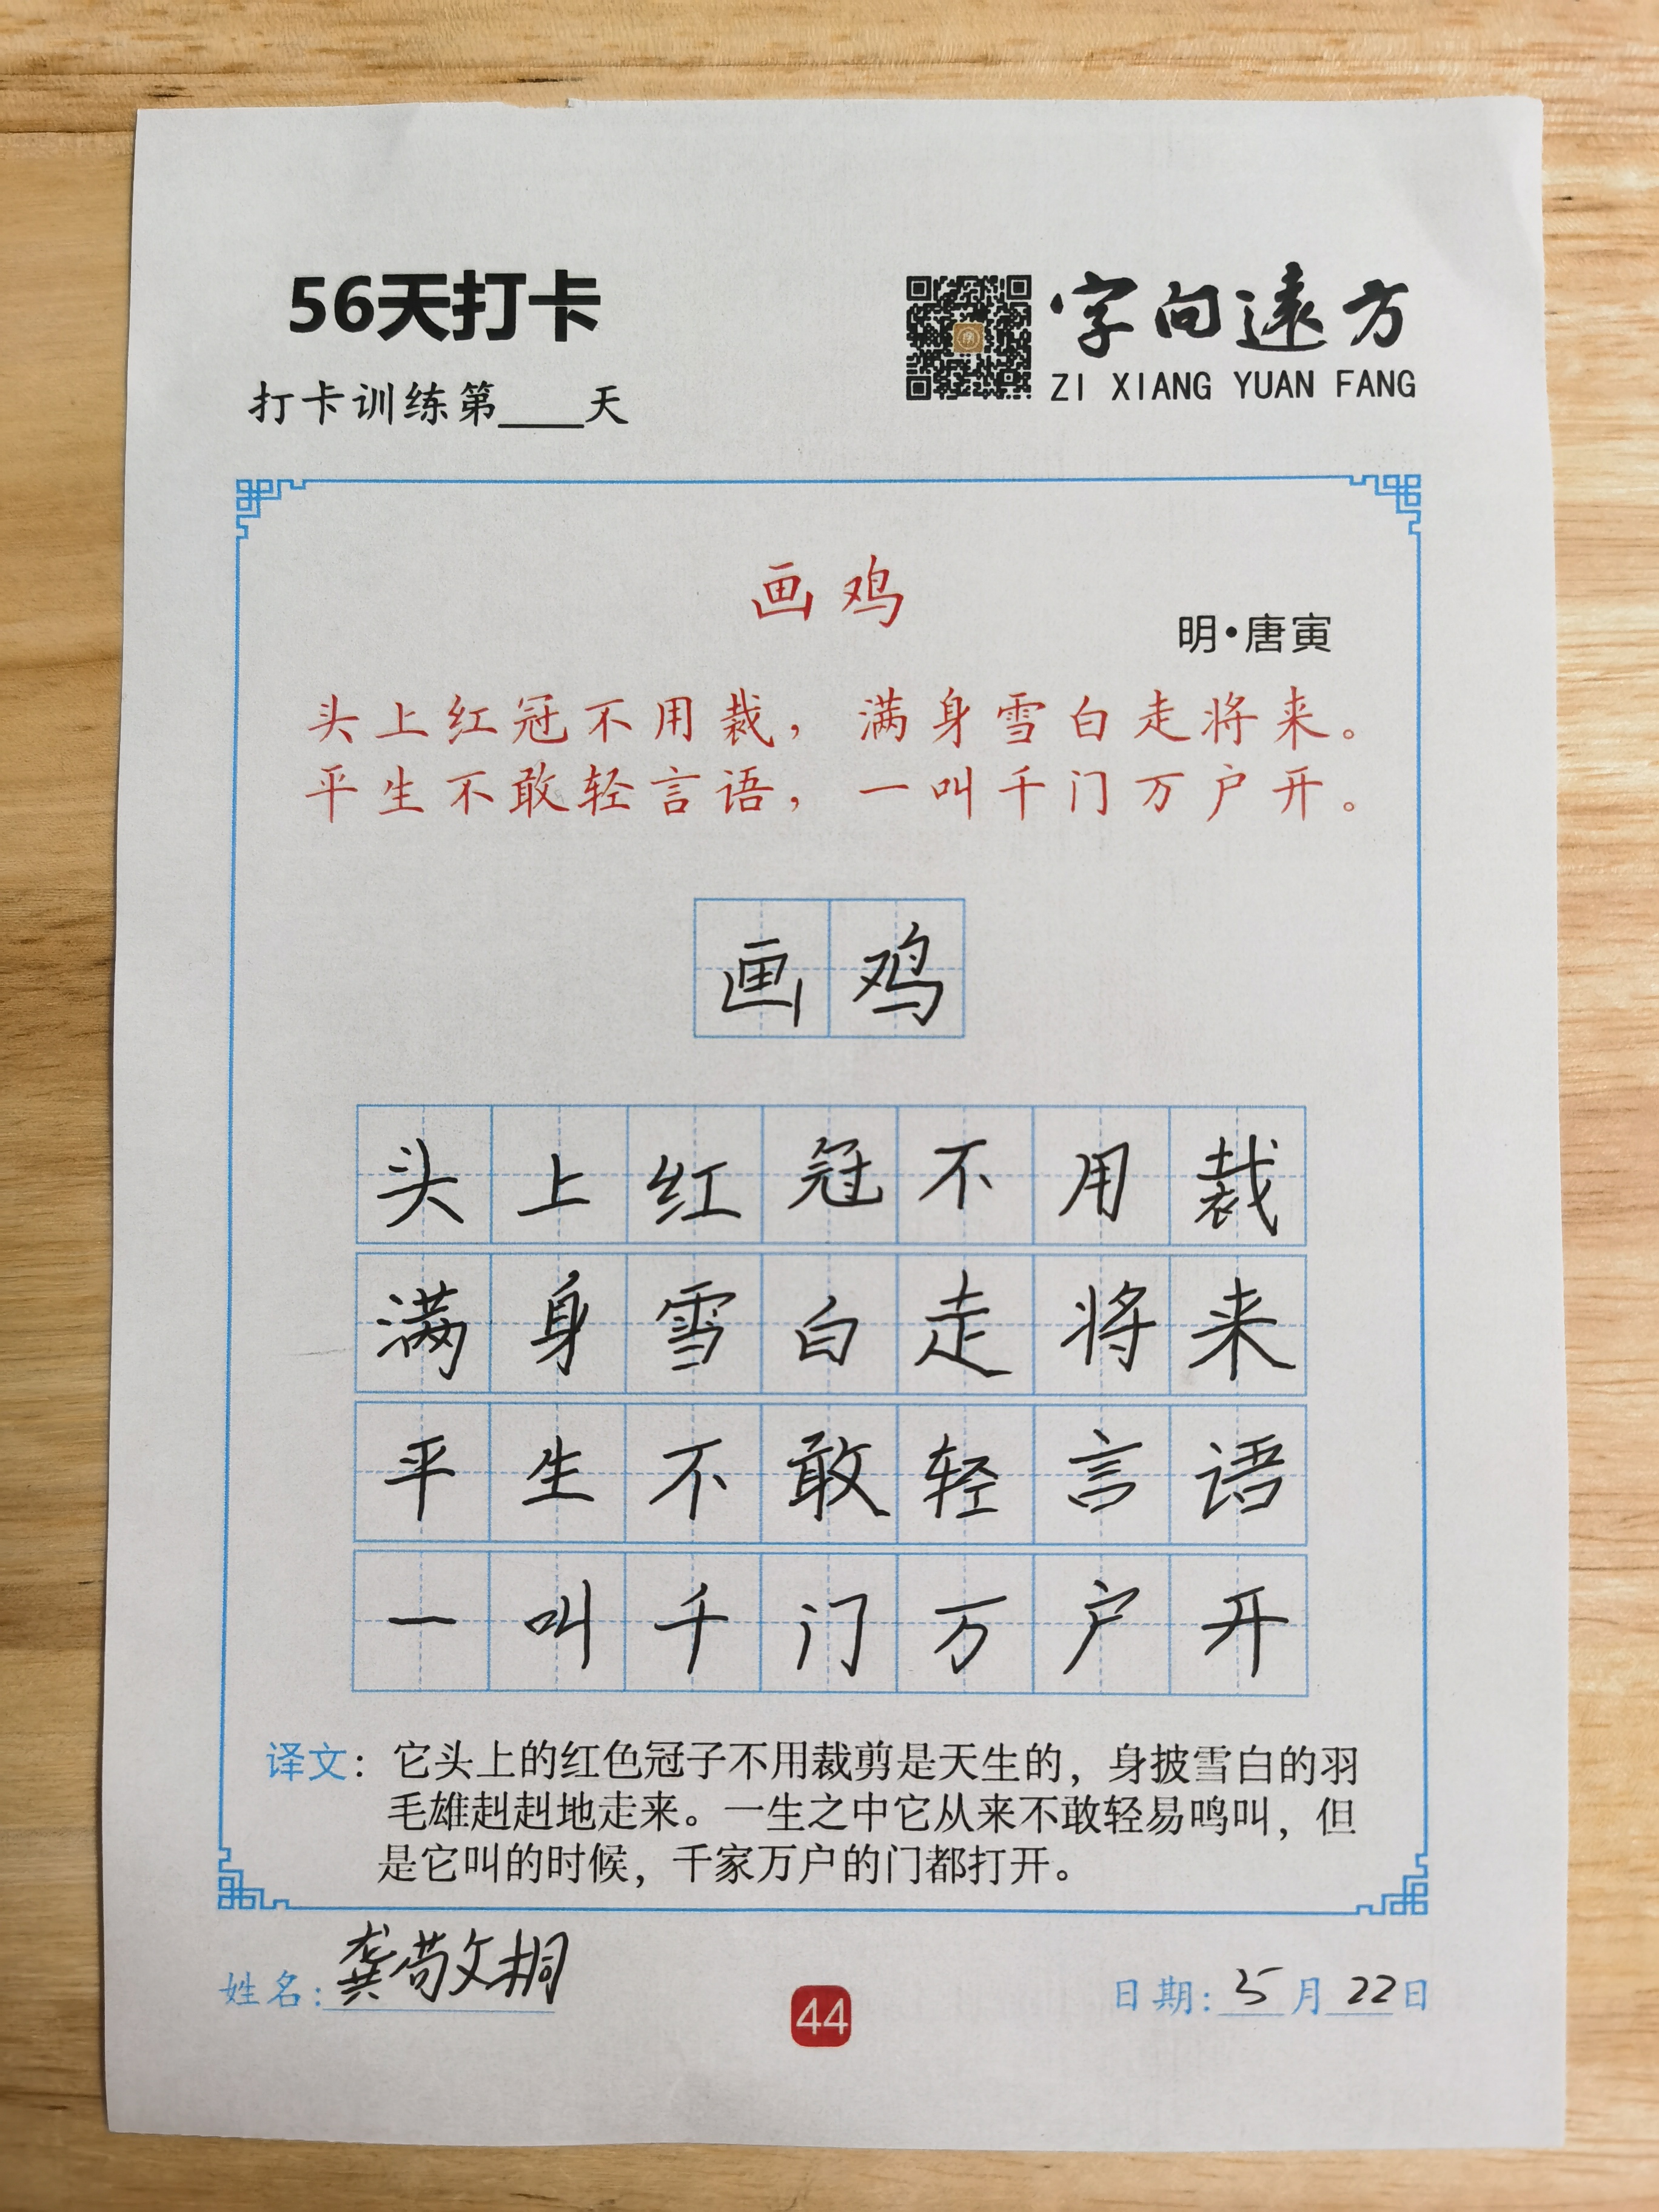 56天打卡
字向遠方
ZI XIANG YUAN FANG
打卡训练第____天
画鸡
明•唐寅
头上红冠不用裁，满身雪白走将来。
平生不敢轻言语，一叫千门万户开。
画鸡
头上红冠不用裁
满身雪白走将来
平生不敢轻言语
一叫千门万户开
译文：它头上的红色冠子不用裁剪是天生的，身披雪白的羽
毛雄赳赳地走来。一生之中它从来不敢轻易鸣叫，但
是它叫的时候，千家万户的门都打开。
姓名：龚敬桐
44
日期：5月22日